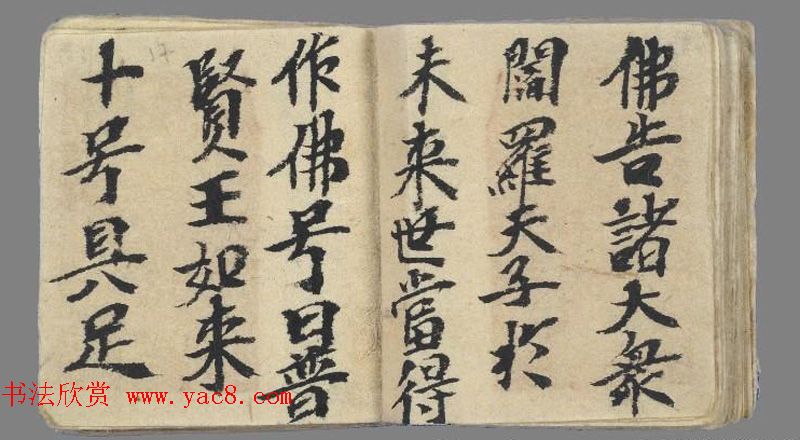 佛告諸大衆
閻羅天子於
未來世當得
作佛号曰普
賢王如来
十号具足
书法欣赏 www.yac8.com
17